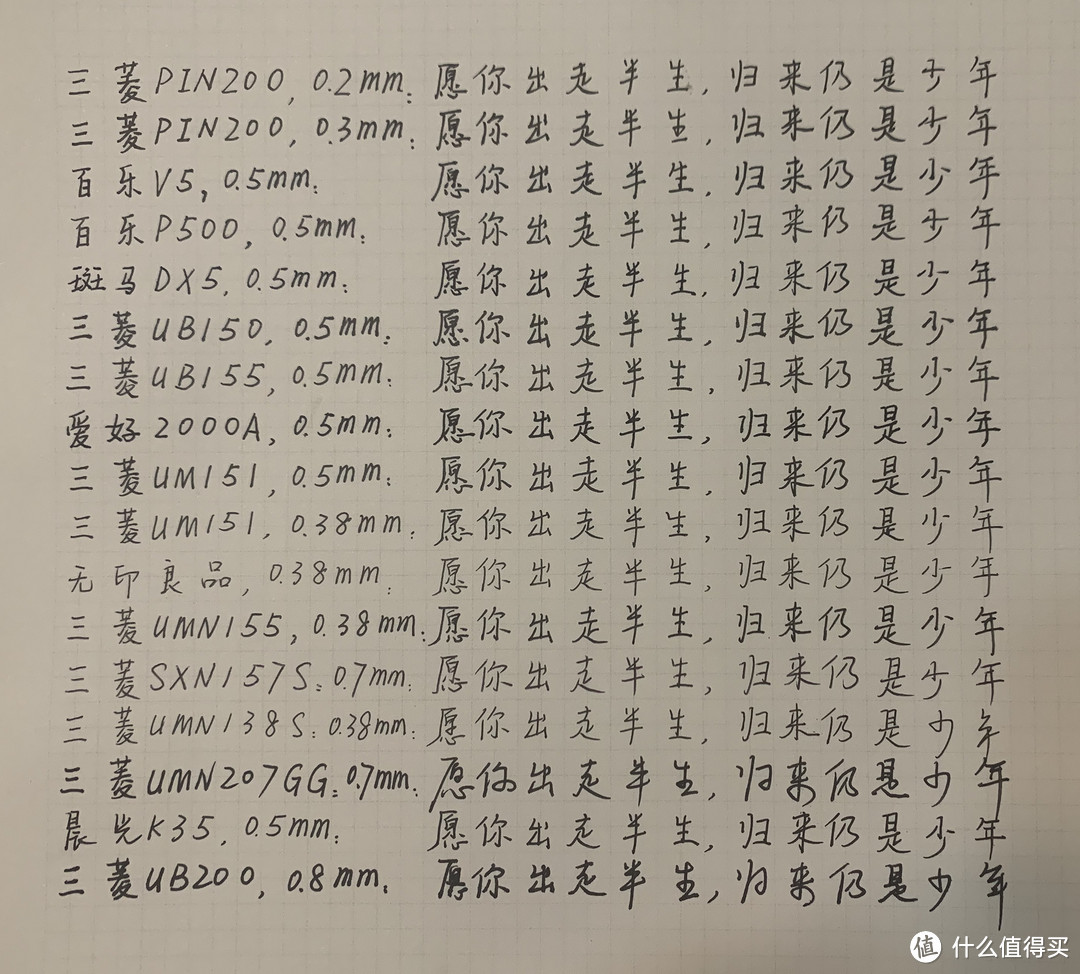 三菱PIN200, 0.2mm: 愿你出走半生, 归来仍是少年
三菱PIN200, 0.3mm: 愿你出走半生, 归来仍是少年
百乐V5, 0.5mm: 愿你出走半生, 归来仍是少年
百乐P500, 0.5mm: 愿你出走半生, 归来仍是少年
斑马DX5, 0.5mm: 愿你出走半生, 归来仍是少年
三菱UB150, 0.5mm: 愿你出走半生, 归来仍是少年
三菱UB155, 0.5mm: 愿你出走半生, 归来仍是少年
爱好2000A, 0.5mm: 愿你出走半生, 归来仍是少年
三菱UM151, 0.5mm: 愿你出走半生, 归来仍是少年
三菱UM151, 0.38mm: 愿你出走半生, 归来仍是少年
无印良品, 0.38mm: 愿你出走半生, 归来仍是少年
三菱UMN155, 0.38mm: 愿你出走半生, 归来仍是少年
三菱SXN157S: 0.7mm: 愿你出走半生, 归来仍是少年
三菱UMN138S: 0.38mm: 愿你出走半生, 归来仍是少年
三菱UMN207GG: 0.7mm: 愿你出走半生, 归来仍是少年
晨光K35, 0.5mm: 愿你出走半生, 归来仍是少年
三菱UB200, 0.8mm: 愿你出走半生, 归来仍是少年
值 什么值得买